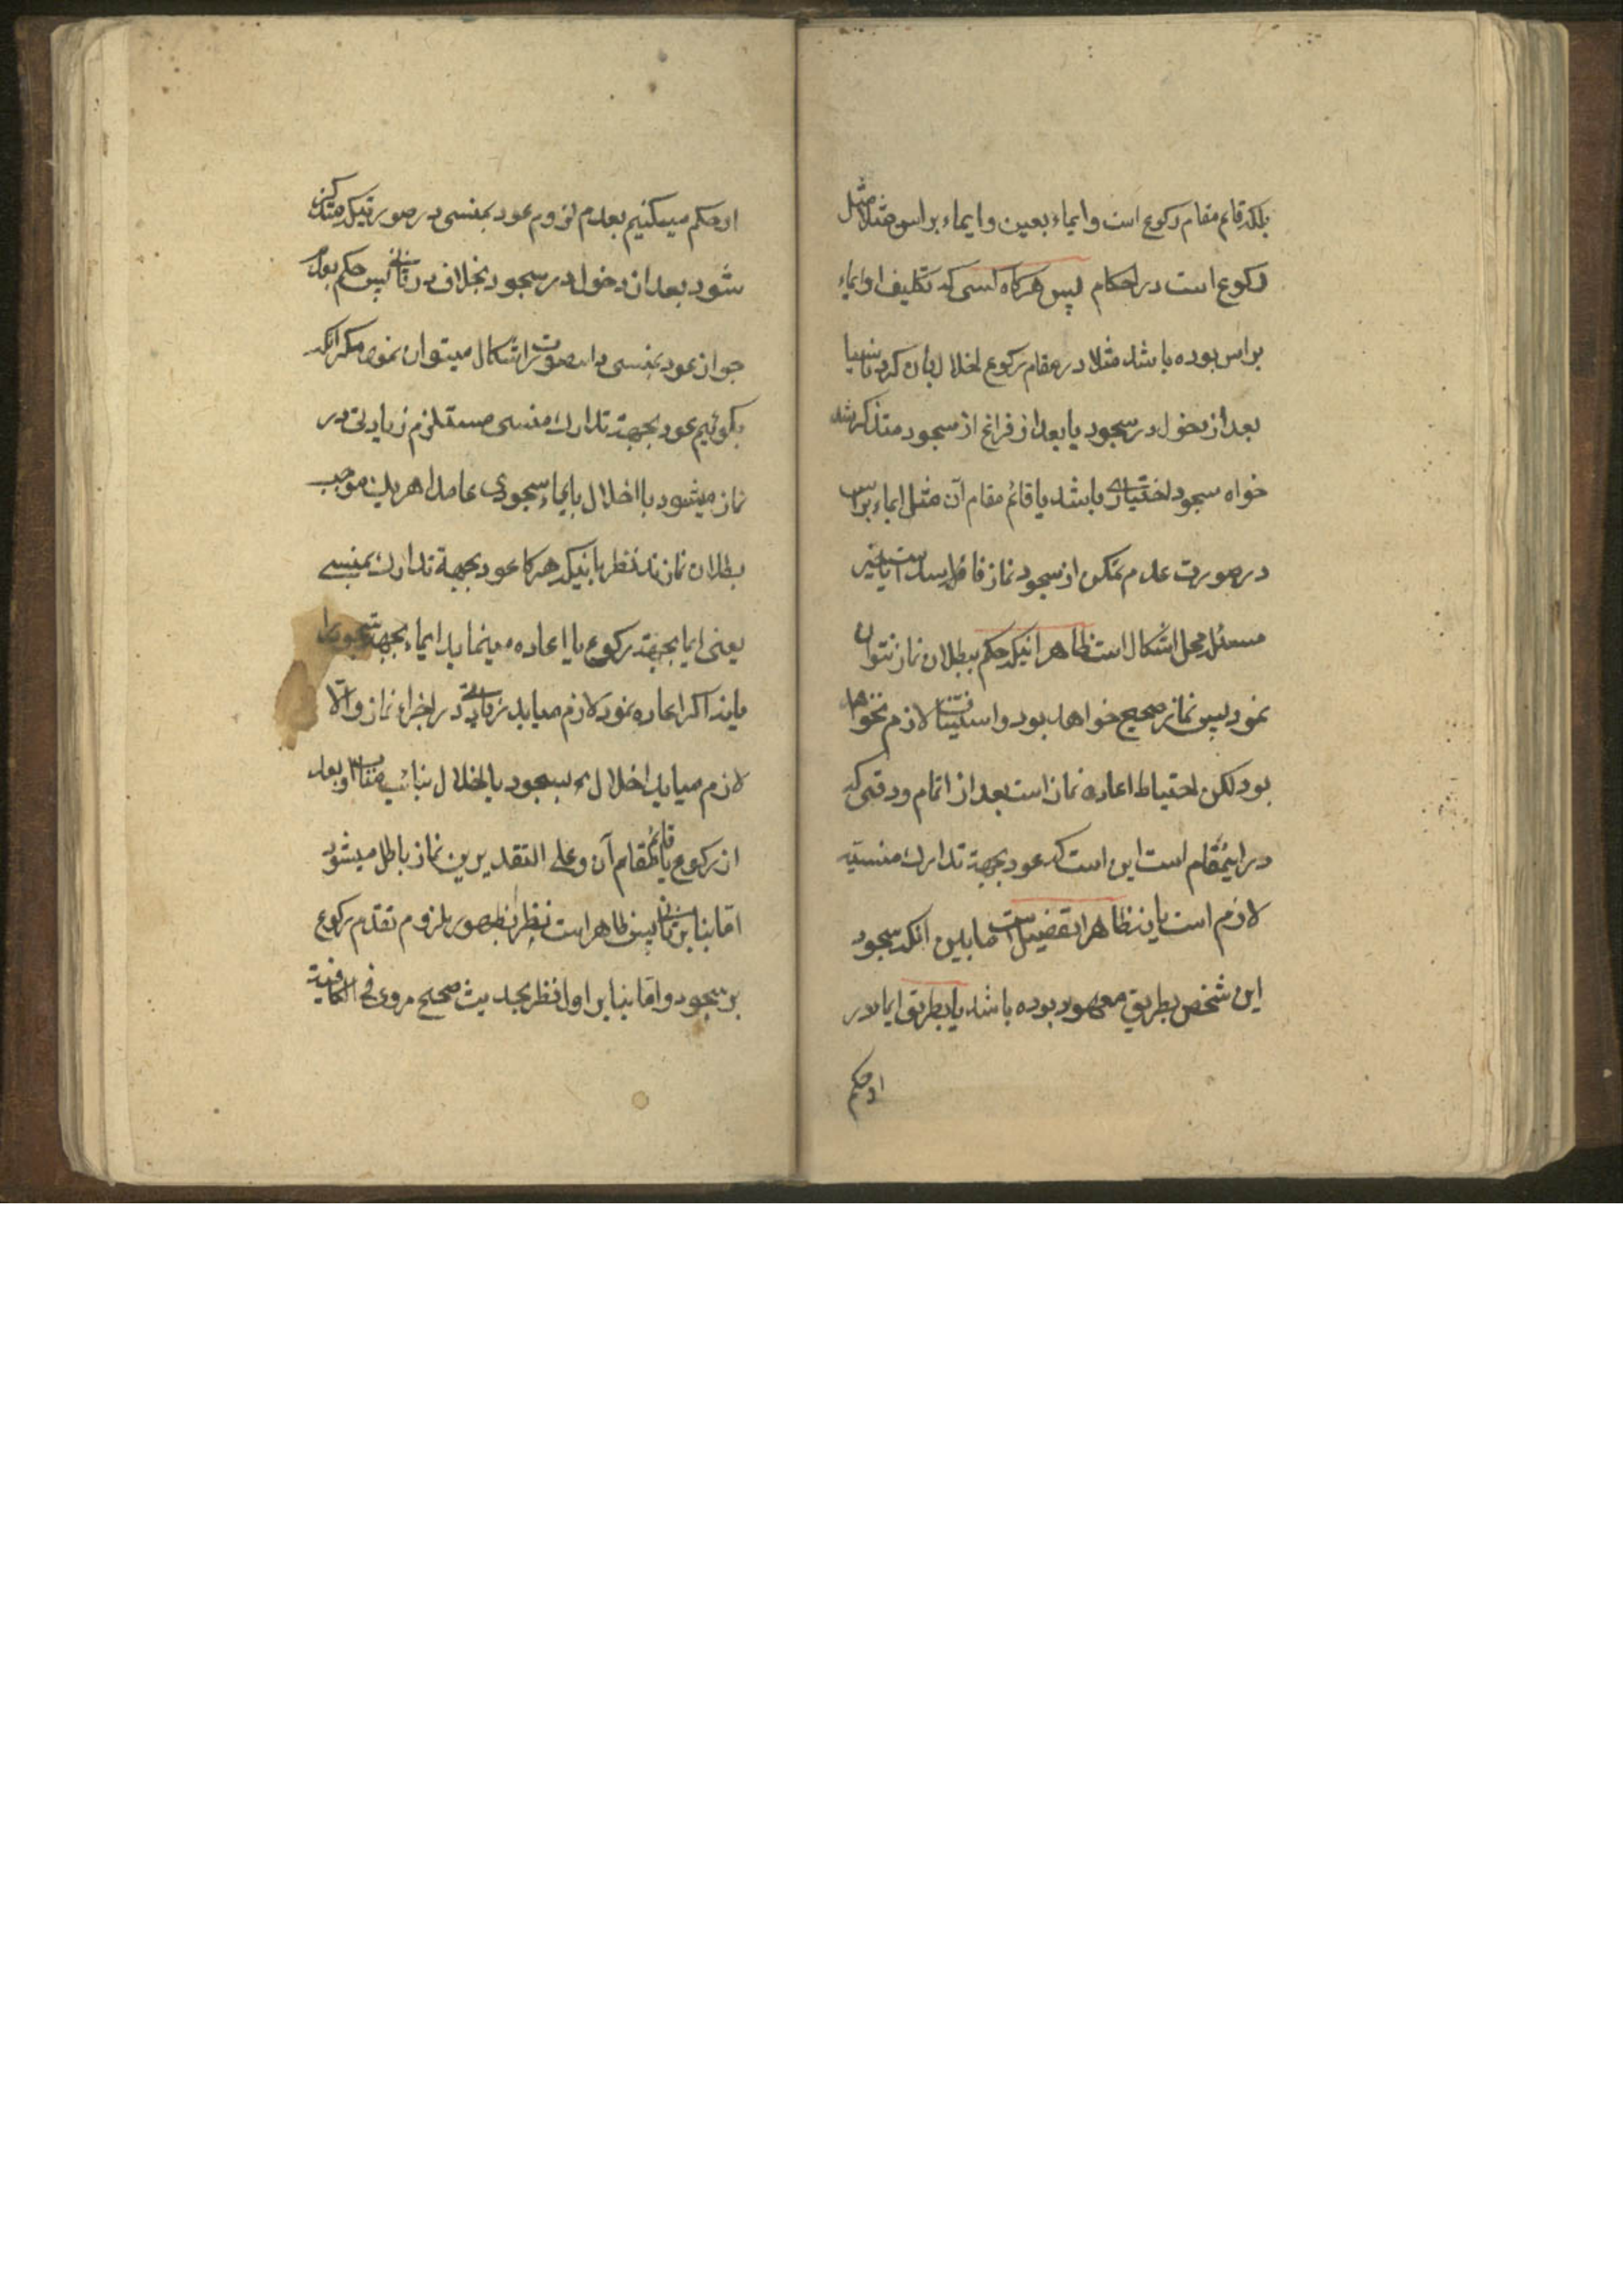 بلکه قائم مقام رکوع است و ایماء بعین و ایماء براس مثلا مثل
رکوع است در احکام پس هرکاه کسی که تکلیف او ایماء
براس بوده باشد مثلا در مقام رکوع اخلال بآن کرد ناسیا
بعد از دخول در سجود یا بعد از فراغ از سجود متذکر شد
خواه سجود اختیاری باشد یا قائم مقام آن مثل ایماء براس
در صورت عدم تمکن از سجود نماز فاسد است یا خیر
مسئله محل اشکال است ظاهر اینکه حکم ببطلان نماز نتوان
نمود پس نماز صحیح خواهد بود و استیناف لازم نخواهد
بود لکن احتیاط اعاده نماز است بعد از اتمام و دقتی که
در اینمقام است این است که عود بجهة تدارک منسیه
لازم است یا نه ظاهرا تفصیل است مابین آنکه سجود
این شخص بطریق معهود بوده باشد یا بطریق ایما در
اول حکم
اول حکم میکنیم بعدم لزوم عود بمنسی در صورتیکه متذکر
شود بعد از دخول در سجود بخلاف در ثانی پس حکم بعدم
جواز عود بمنسی در این صورت اشکال میتوان نمود مکر آنکه
بکوئیم عود بجهة تدارک منسی مستلزم زیادتی در
نماز میشود با اخلال بایماء سجودی عامدا هریک موجب
بطلان نمازند نظر باینکه هرکا عود بجهة تدارک بمنسی
یعنی ایما بجهة رکوع یا اعاده مینماید ایماء بجهة سجود را
یا نه اکر اعاده نمود لازم میاید زیادتی در اجزاء نماز و الا
لازم میاید اخلال بسجود یا اخلال بنائب مناب او بعد
از رکوع یا قائم مقام آن و علی التقدیرین نماز باطل میشود
اما بنا بر ثانی پس ظاهر است نظر بظهور لزوم تقدم رکوع
بر سجود و اما بنا بر اول نظر بحدیث صحیح مروی فی الکافی